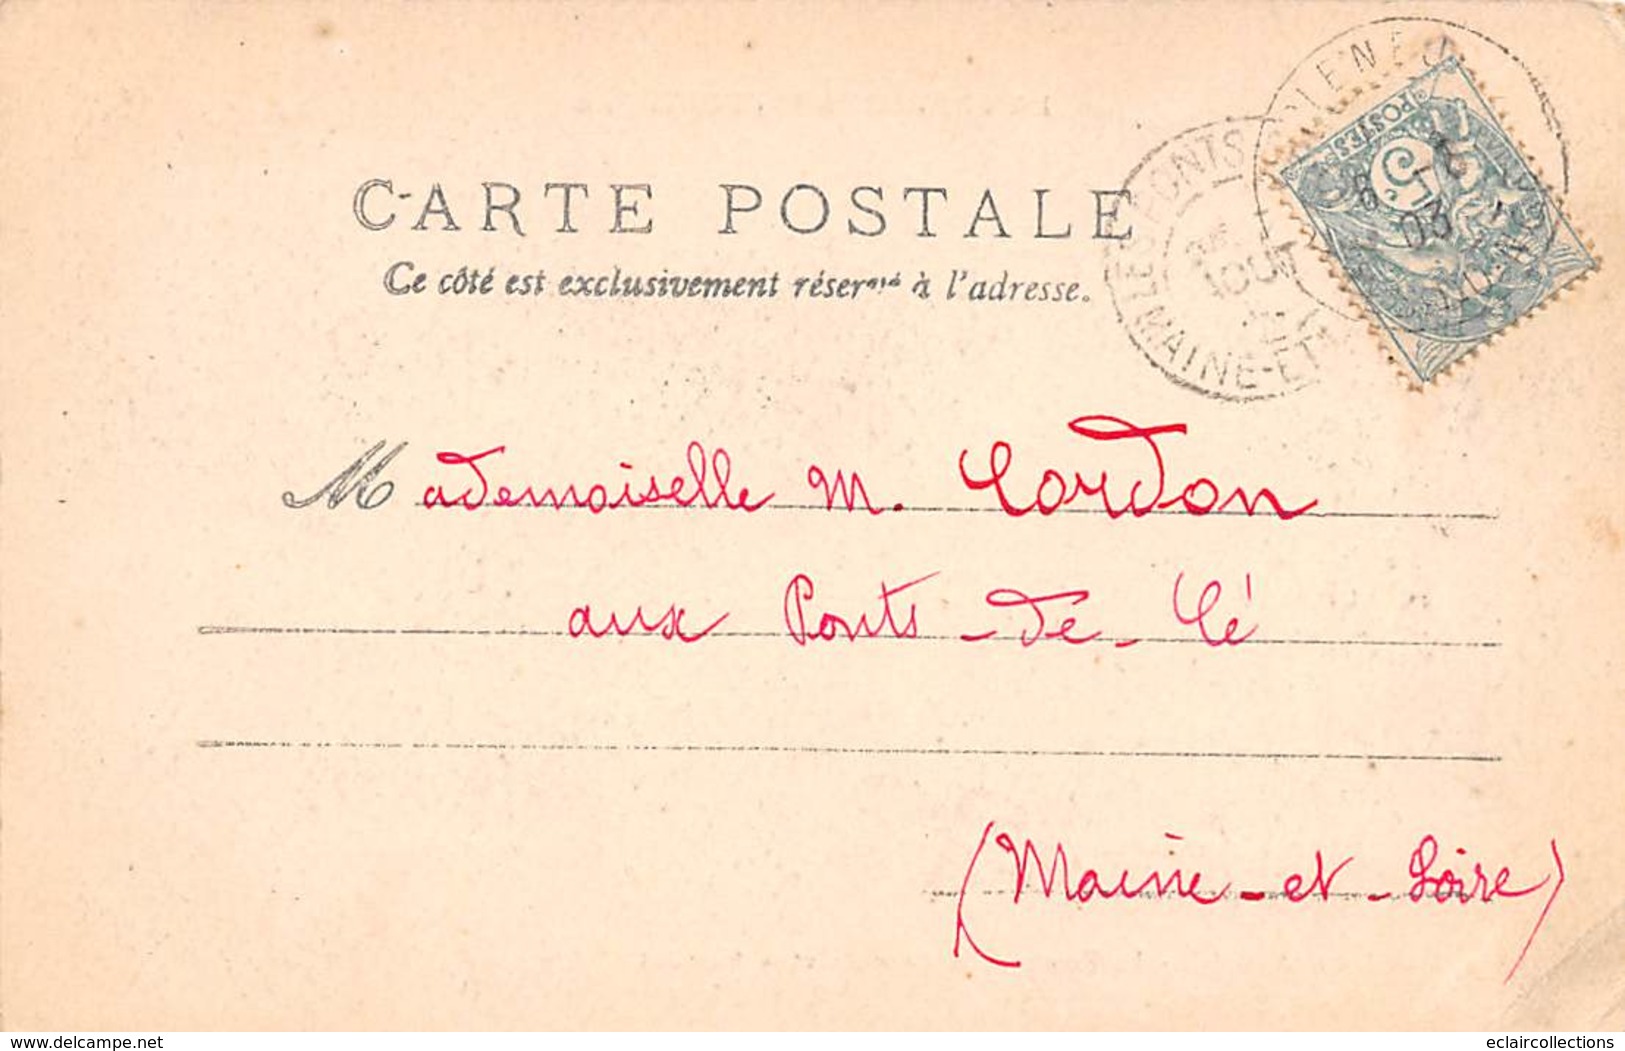 CARTE POSTALE
Ce côté est exclusivement réservé à l'adresse.
POSTES
5
03
LES PONTS
AOUT
MAINE-ET
Mademoiselle M. Cordon
aux Ponts-de-Cé
(Maine-et-Loire)
www.delcampe.net
eclaircollections